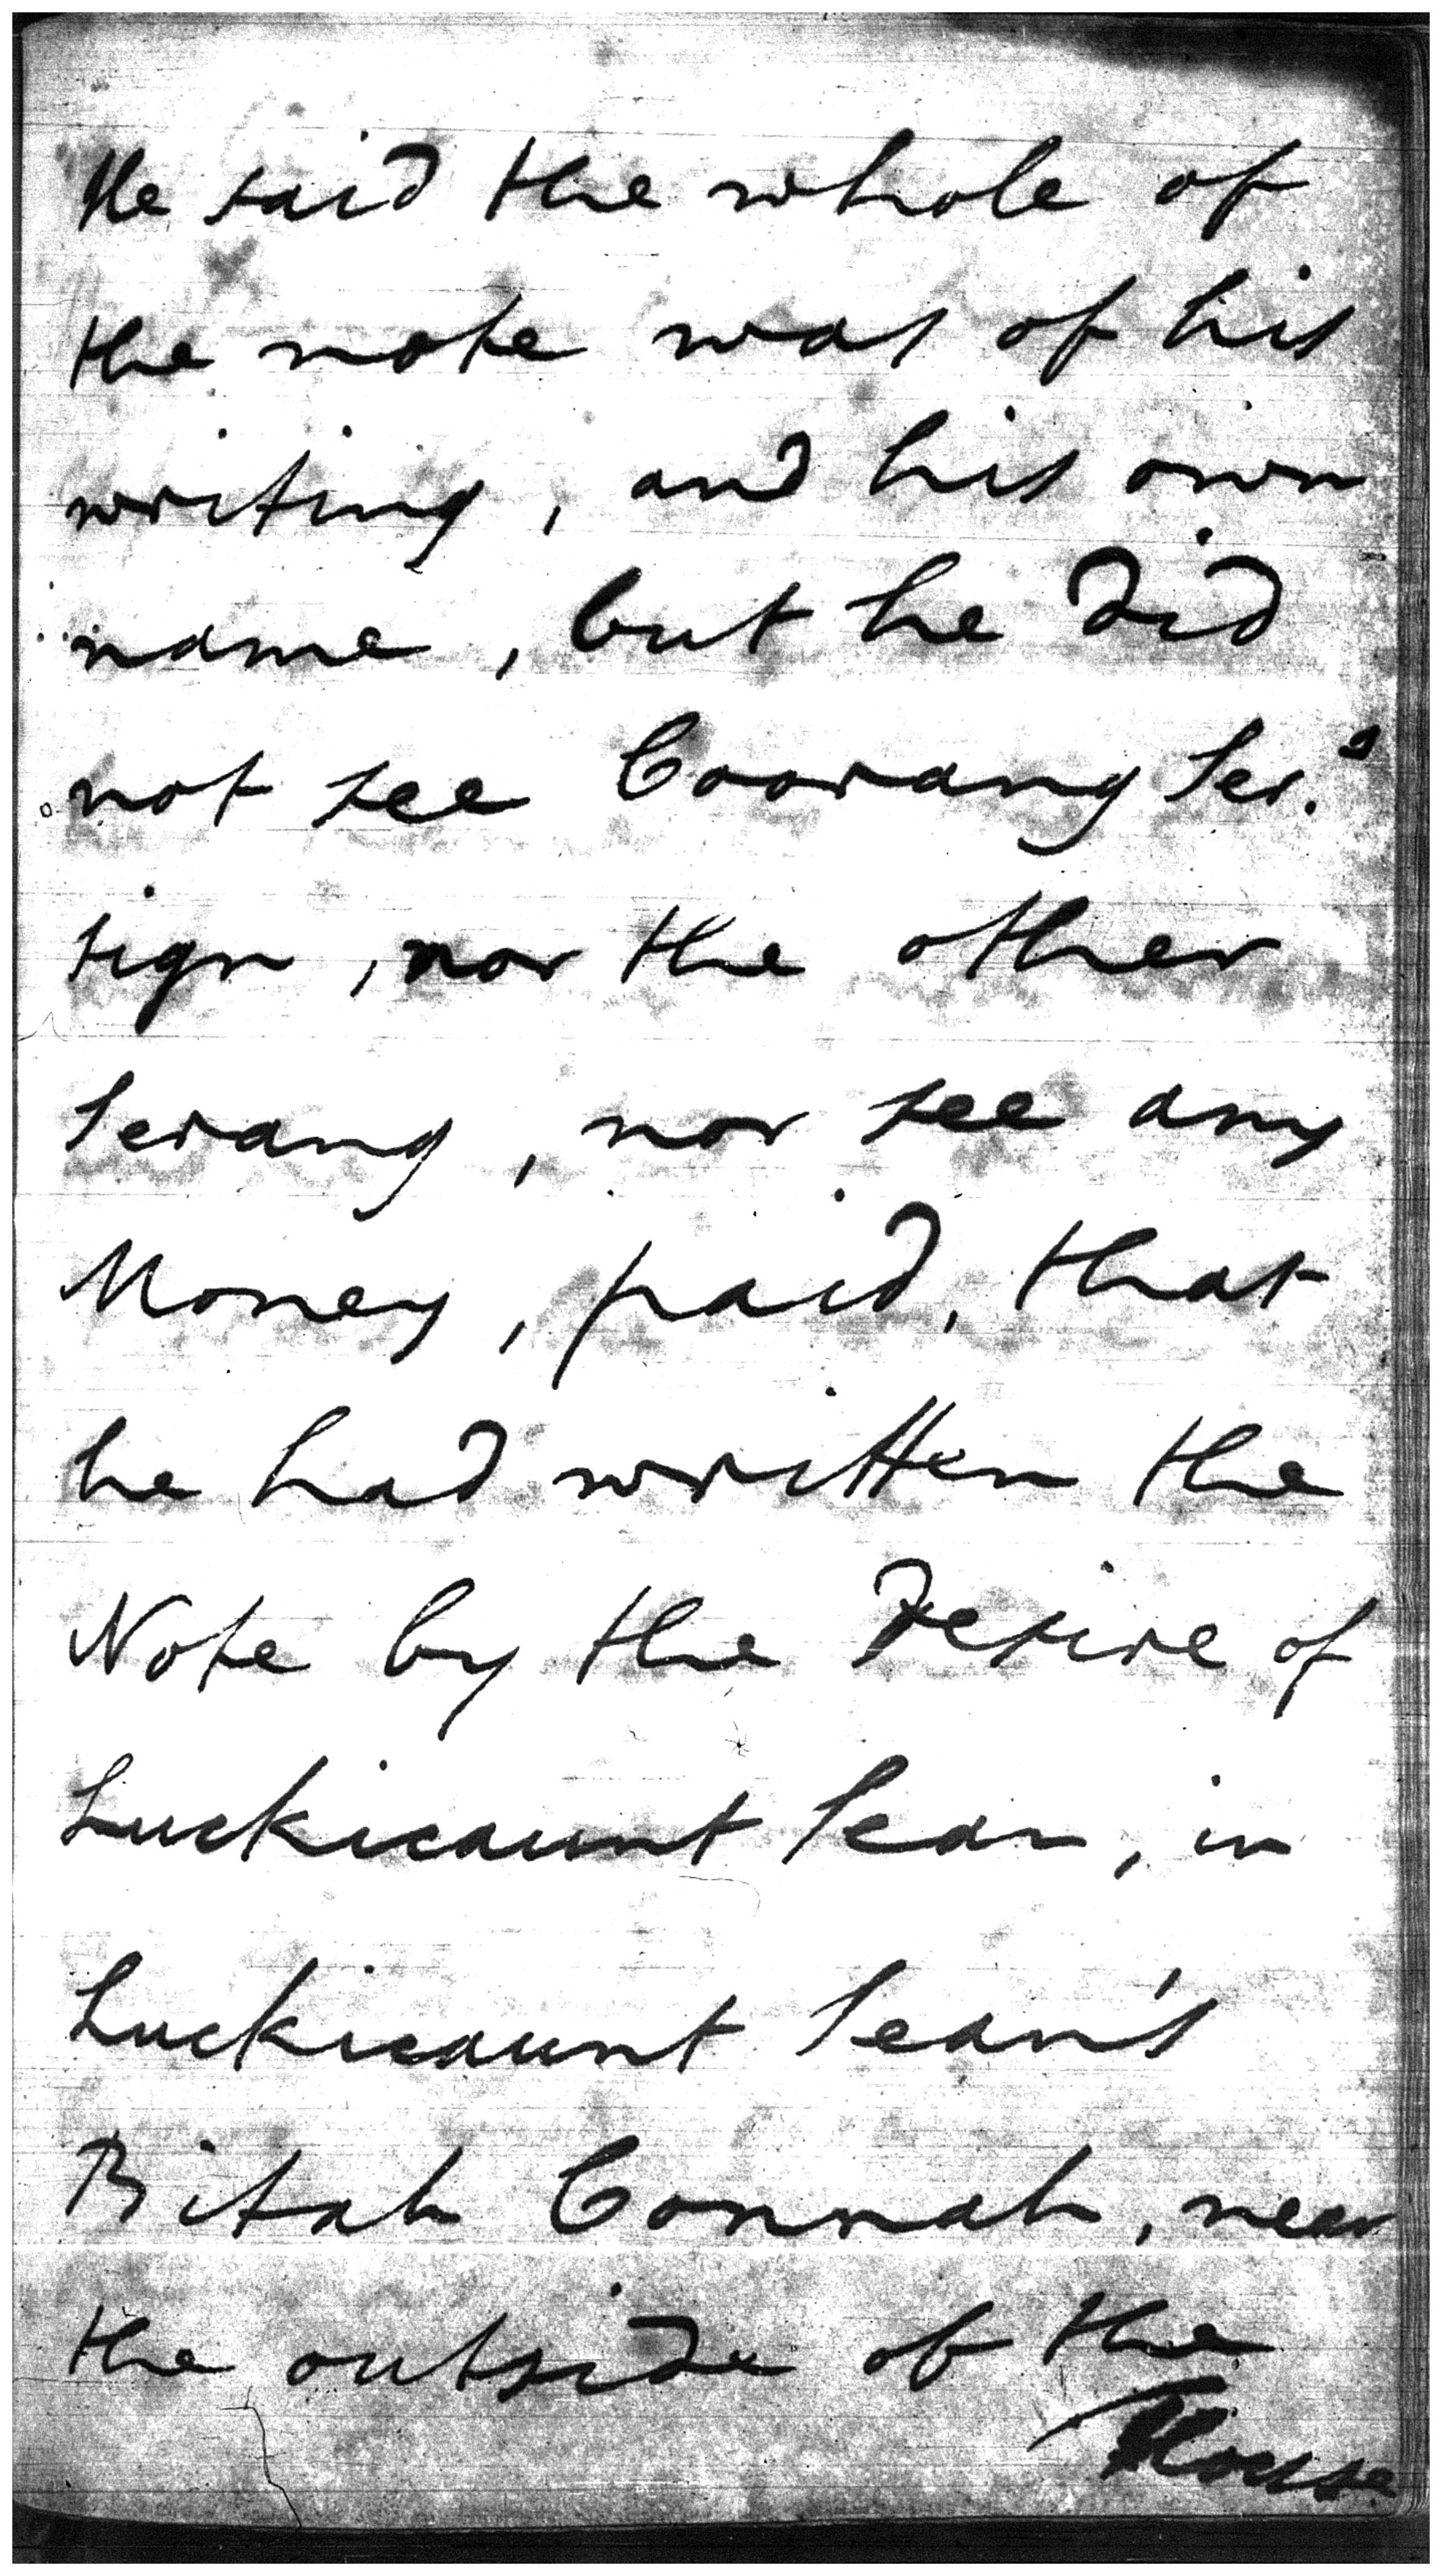 He said the whole of
the note was of his
writing, and his own
name, but he did
not see Coorang Ser.g
sign, nor the other
Serang, nor see any
Money, paid, that
he had written the
Note by the Desire of
Luckicaunt Sean, in
Luckicaunt Sean's
Bitah Connah, near
the outside of the
House